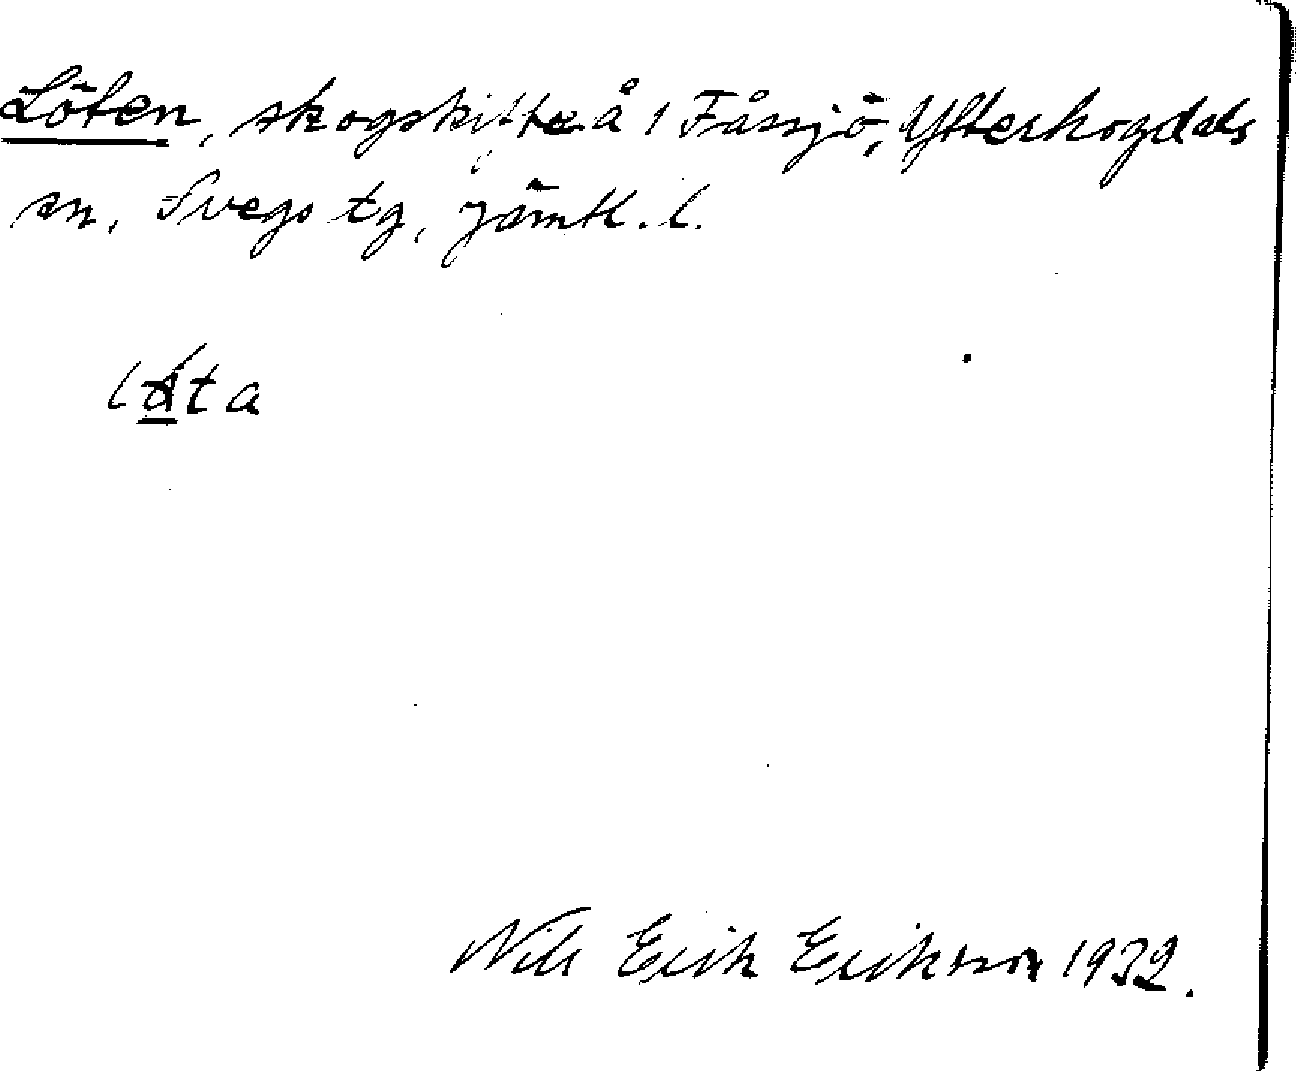 Löten, skogskifte å 1 Fåssjö, Ytterhogdals
sn, Svegs tg, Jämtl. l.
Nils Erik Eriksson 1932.